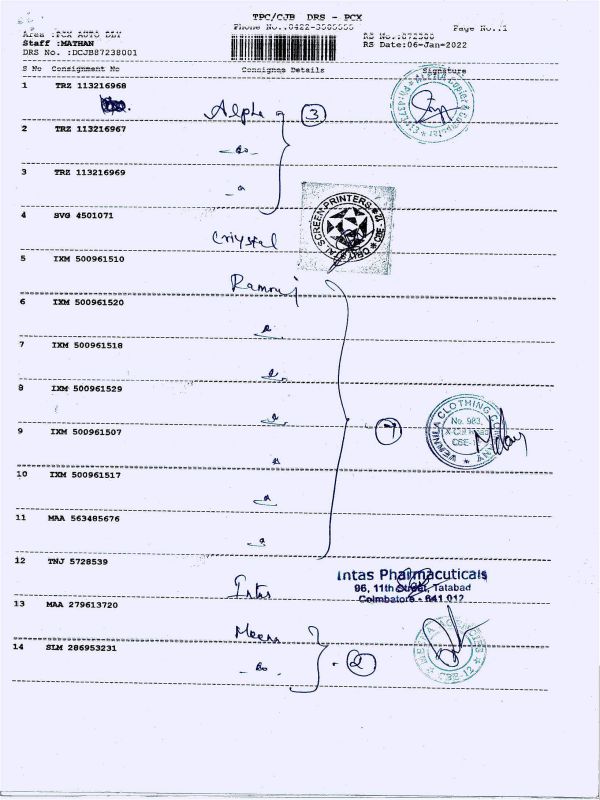 TPC/CJB DRS - PCX
Phone No.:0422-3505555
Page No.:1
Area :PCX AUTO DLV
RS No.:872380
Staff :MATHAN
RS Date:06-Jan-2022
DRS No. :DCJB87238001
S No Consignment No Consignee Details Signature
1 TRZ 113216968
Alpha 3
2 TRZ 113216967
Do
3 TRZ 113216969
4 SVG 4501071
Criystal
CRIYSTAL SCREEN PRINTERS CBE-12
5 IXM 500961510
Ramraj
6 IXM 500961520
7 IXM 500961518
8 IXM 500961529
9 IXM 500961507
7
VENNILA CLOTHING COMPANY
No. 983,
CBE-12
10 IXM 500961517
11 MAA 563485676
12 TNJ 5728539
Intas
Intas Pharmacuticals
96, 11th Street, Tatabad
Coimbatore - 641 012
13 MAA 279613720
Meena
14 SLM 286953231
Do 2
CBE-12